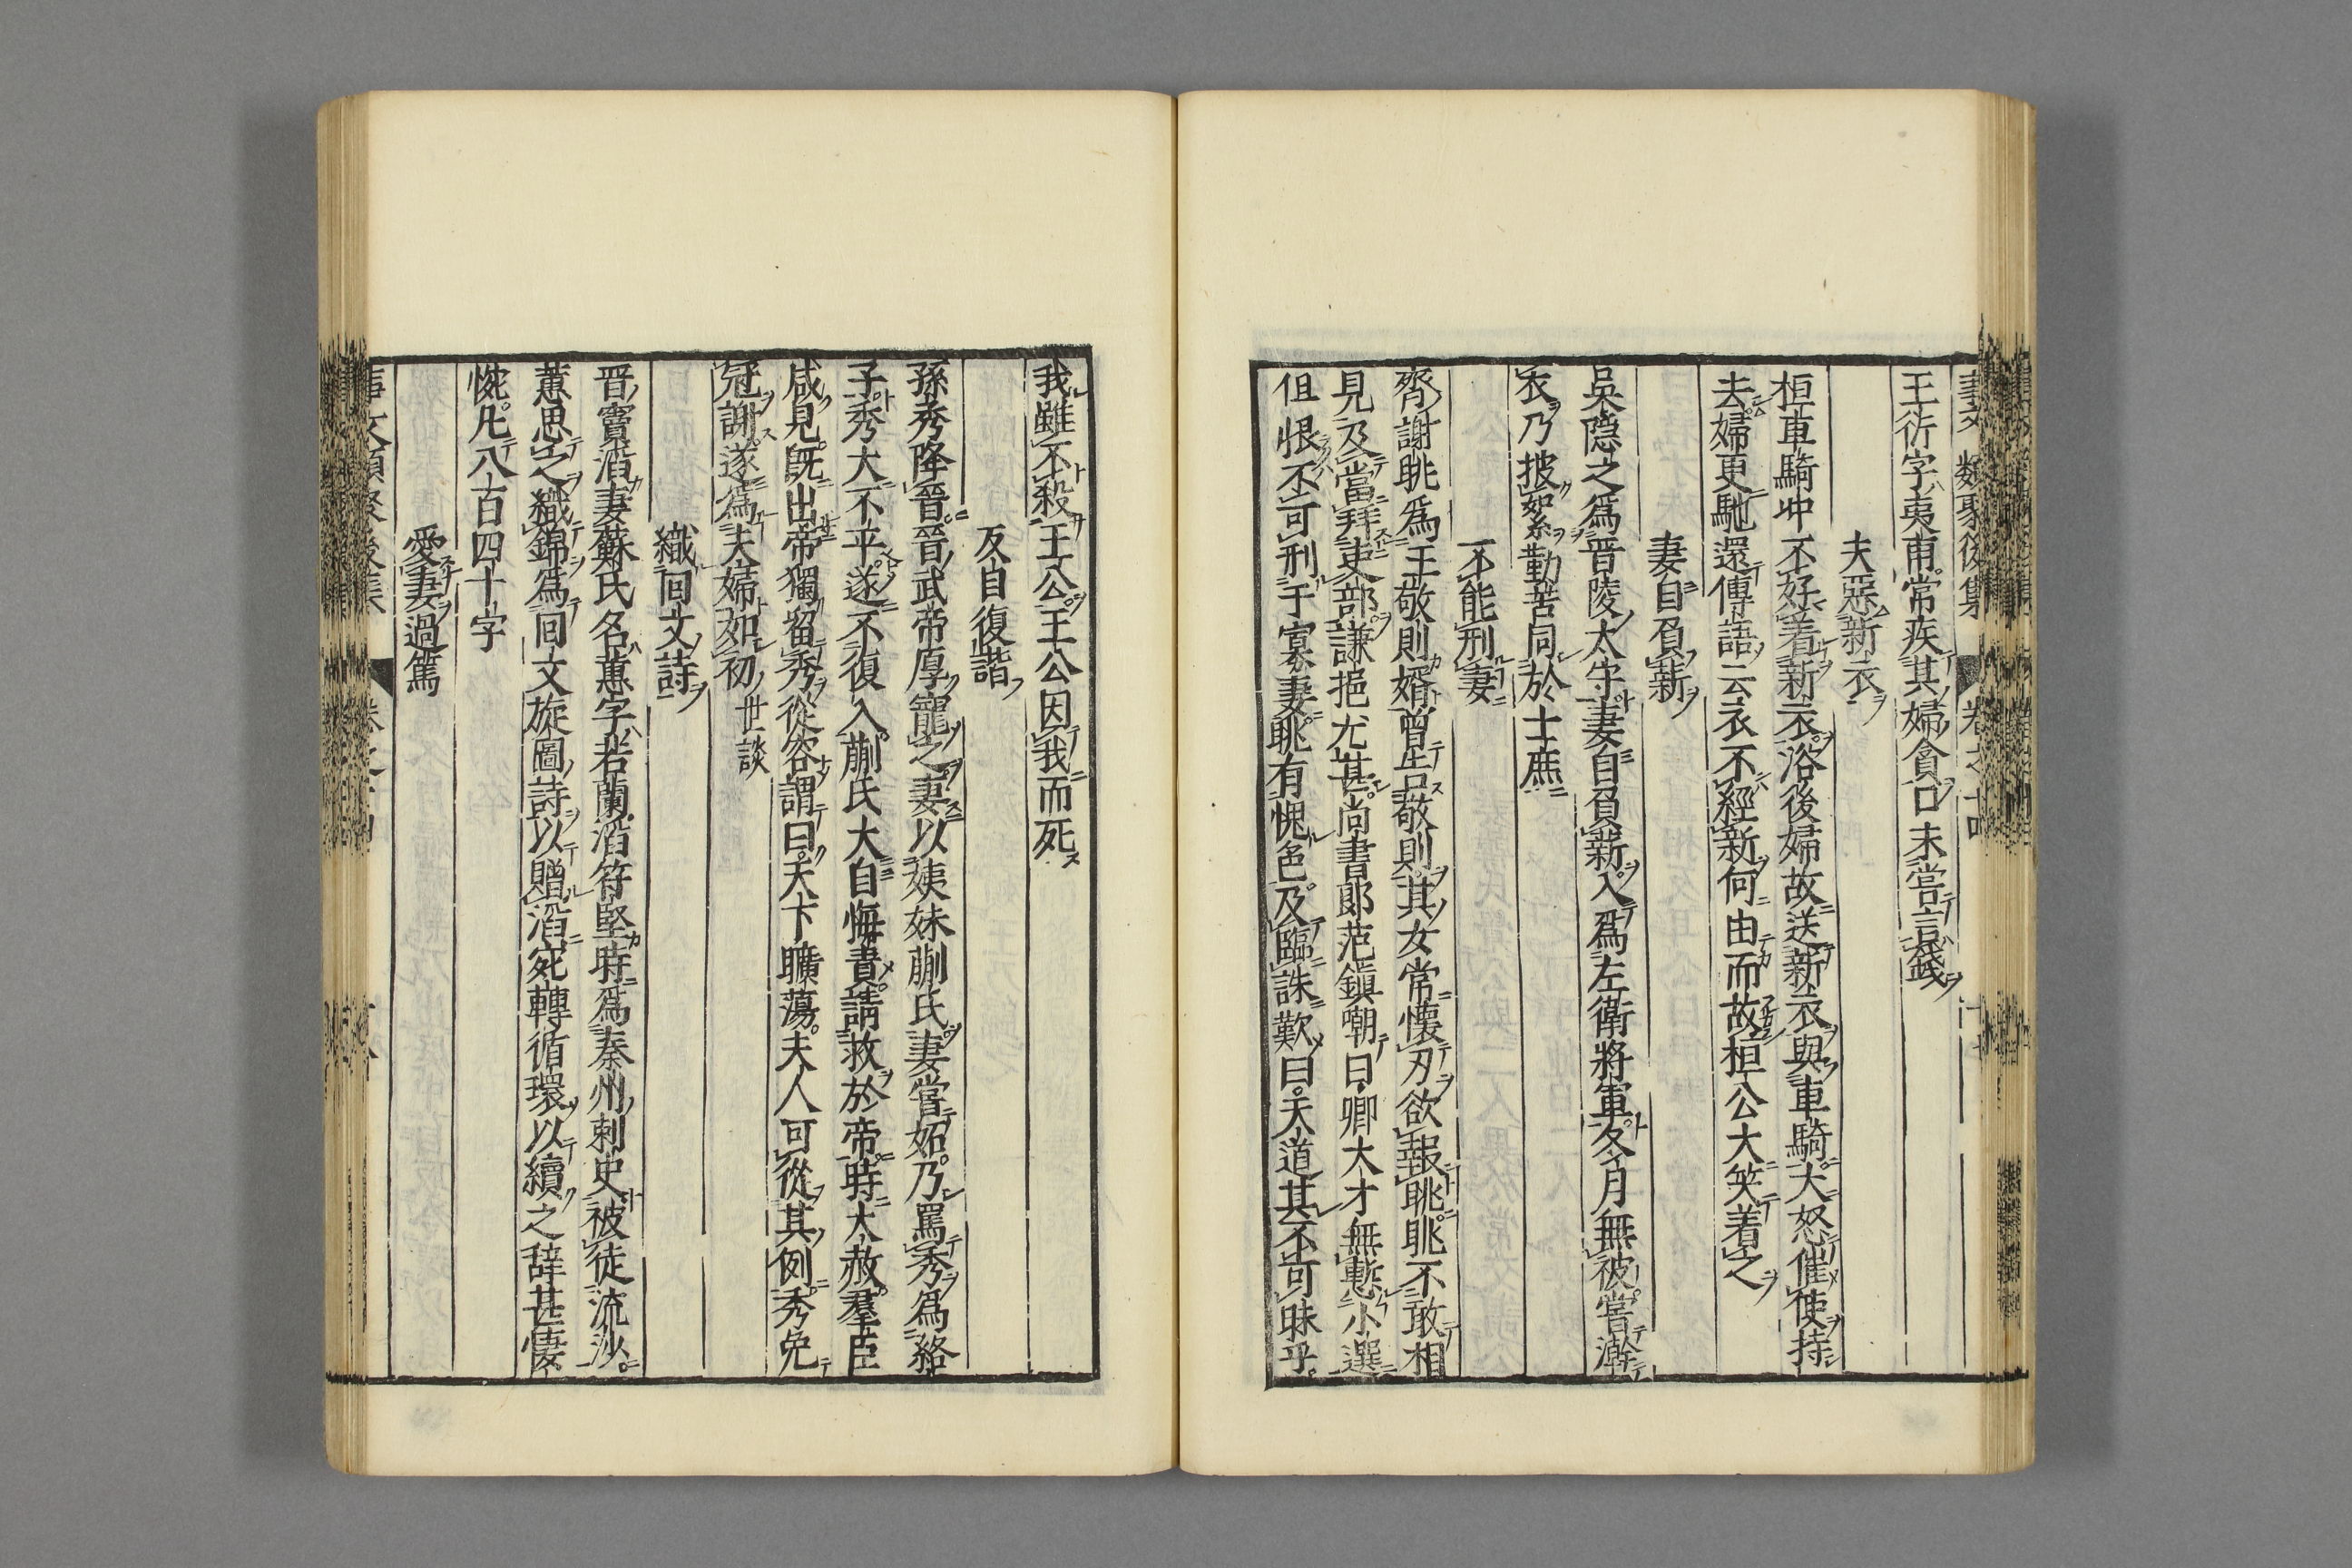 王衍字夷甫常疾其婦貪口未嘗言錢
夫惡新衣
桓車騎冲不好着新衣浴後婦故送新衣與車騎大怒催使持
去婦更馳還傳語云衣不經新何由而故桓公大笑着之
妻自負薪
吳隠之爲晋陵太守妻自負薪入爲左衛將軍冬月無被嘗澣
衣乃披絮勤苦同於士庶
不能刑妻
齊謝眺爲王敬則婿曽告敬則其女常懐刃欲報眺眺不敢相
見及當拜吏部謙挹尤甚尚書郎范鎭嘲曰卿大才無慙小選
但恨不可刑于寡妻眺有愧色及臨誅歎曰天道其不可昧乎
我雖不殺王公王公因我而死
反自復諧
孫秀降晉晉武帝厚寵之妻以姨妹蒯氏妻嘗妬乃罵秀爲貉
子秀大不平遂不復入蒯氏大自悔責請救於帝時大赦羣臣
咸見旣出帝獨留秀從容謂曰天下曠蕩夫人可從其例秀免
冠謝遂爲夫婦如初 世談
織囘文詩
晋竇滔妻蘇氏名蕙字若蘭滔符堅時爲秦州刺史被徒流沙
蕙思之織錦爲囘文旋圖詩以贈滔宛轉循環以續之辞甚悽
惋凡八百四十字
愛妻過篤